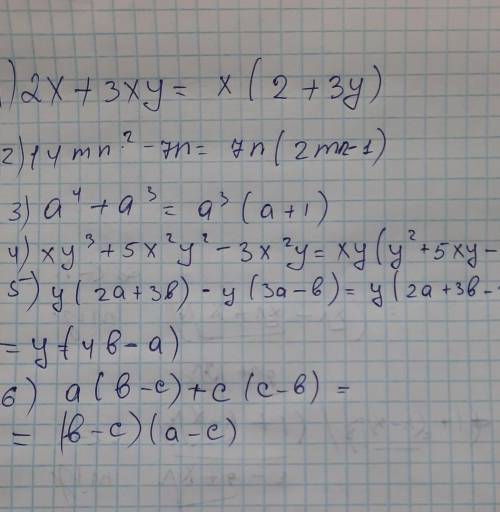 ) 2x + 3xy = x ( 2 + 3y )
2) 14mn² - 7n = 7n ( 2mn - 1 )
3) a⁴ + a³ = a³ ( a + 1 )
4) xy³ + 5x²y² - 3x²y = xy ( y² + 5xy -
5) y ( 2a + 3в ) - y ( 3a - в ) = y ( 2a + 3в -
= y ( 4в - a )
6) a ( в - c ) + c ( c - в ) =
= ( в - c ) ( a - c )